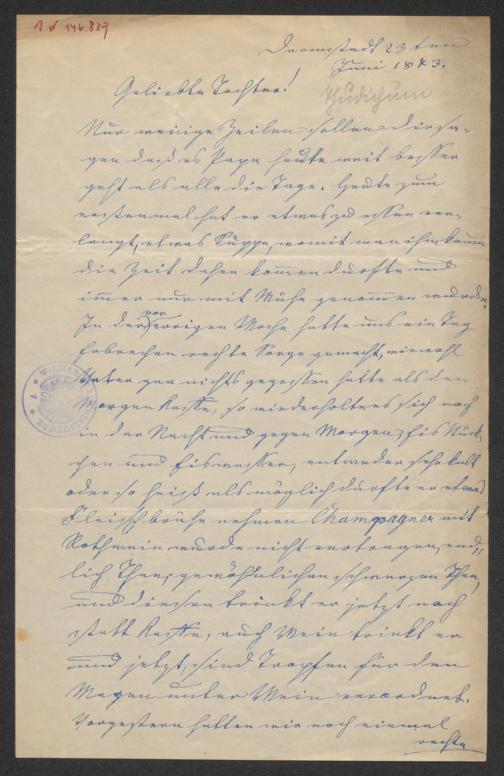 I. N. 146.839
Darmstadt 23ten
Juni 1873.
Thudichum
Geliebte Tochter!
Nur wenige Zeilen sollen dir sa-
gen daß es Papa heute weit besser
geht als alle die Tage. Heute zum
erstenmal hat er etwas zu essen ver-
langt, etwas Suppe, womit man ihm kaum
die Zeit daher kommen durfte und
immer nur mit Mühe genommen wurde.
In der vor
vorigen Woche hatte uns ein Tag
Erbrechen rechte Sorge gemacht, wiewohl
Vater gar nichts gegessen hatte als den
Morgen Kaffe, so wiederholte es sich noch
in der Nacht und gegen Morgen, Eis Stück-
chen und Eiswasser, entweder sehr kalt
oder so heiß als möglich durfte er etwas
Fleischbrühe nehmen Champagner mit
Rothwein wurde nicht vertragen, end-
lich Thee, gewöhnlichen schwarzen Thee,
und diesen trinkt er jetzt noch
statt Kaffe, auch Wein trinkt er
und jetzt, sind Tropfen für den
Magen unter Wein verordnet.
Vorgestern hatten wir noch einmal
rechte